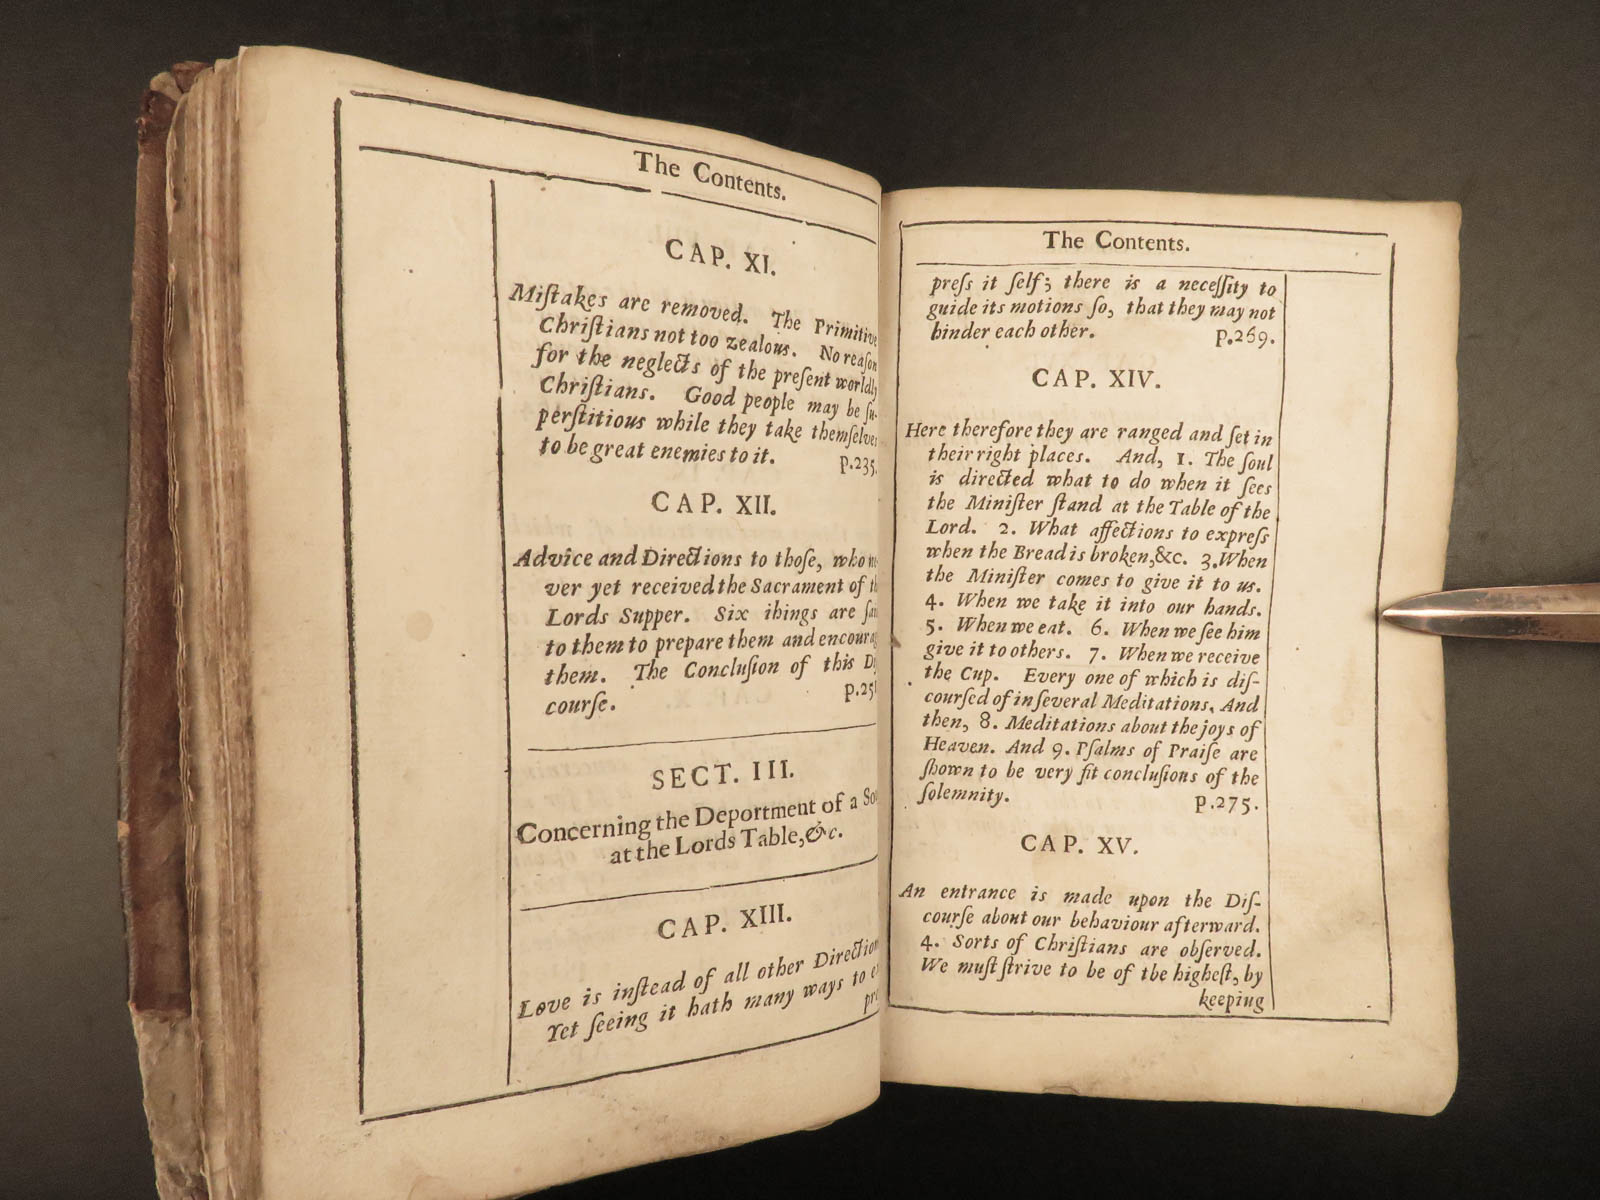 The Contents.
CAP. XI.
Miſtakes are removed. The Primitive
Chriſtians not too zealous. No reaſon
for the neglects of the preſent worldly
Chriſtians. Good people may be ſu-
perſtitious while they take themſelves
to be great enemies to it. p.235.
CAP. XII.
Advice and Directions to thoſe, who
ver yet received the Sacrament of
Lords Supper. Six ihings are
to them to prepare them and
them. The Concluſion of this
courſe. p.251
SECT. III.
Concerning the Deportment of a
at the Lords Table, &c.
CAP. XIII.
Love is inſtead of all other
Yet ſeeing it hath many ways to
The Contents.
preſs it ſelf; there is a neceſſity to
guide its motions ſo, that they may not
hinder each other. p.269.
CAP. XIV.
Here therefore they are ranged and ſet in
their right places. And, 1. The ſoul
is directed what to do when it ſees
the Miniſter ſtand at the Table of the
Lord. 2. What affections to expreſs
when the Bread is broken, &c. 3. When
the Miniſter comes to give it to us.
4. When we take it into our hands.
5. When we eat. 6. When we ſee him
give it to others. 7. When we receive
the Cup. Every one of which is diſ-
courſed of in ſeveral Meditations. And
then, 8. Meditations about the joys of
Heaven. And 9. Pſalms of Praiſe are
ſhown to be very fit concluſions of the
ſolemnity. p.275.
CAP. XV.
An entrance is made upon the Diſ-
courſe about our behaviour afterward.
4. Sorts of Chriſtians are obſerved.
We muſt ſtrive to be of the higheſt, by
keeping